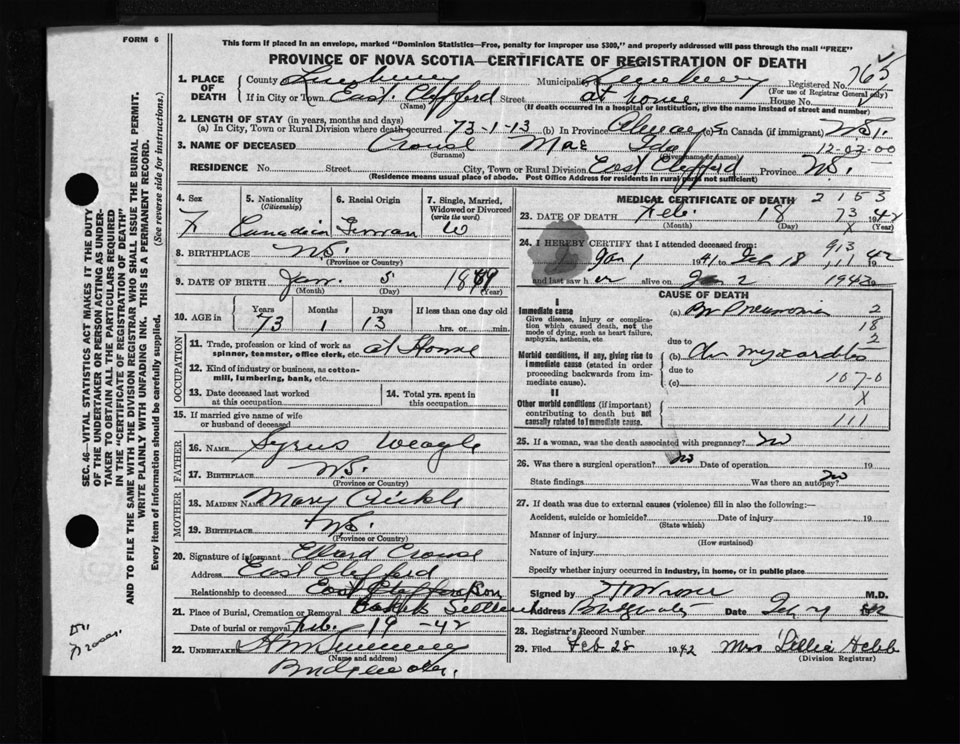 FORM 6
This form if placed in an envelope, marked "Dominion Statistics—Free, penalty for improper use $300," and properly addressed will pass through the mail "FREE"
PROVINCE OF NOVA SCOTIA—CERTIFICATE OF REGISTRATION OF DEATH
1. PLACE OF DEATH County Lunenburg Municipality Lunenburg Registered No. 765
(For use of Registrar General only)
If in City or Town East Clifford Street at home House No.
(Name) (If death occurred in a hospital or institution, give the name instead of street and number)
2. LENGTH OF STAY (in years, months and days)
(a) In City, Town or Rural Division where death occurred 73-1-13 (b) In Province Always (c) In Canada (if immigrant)
3. NAME OF DECEASED Crouse Mae Ida 12-02-00
(Surname) (Given name or names)
RESIDENCE No. Street City, Town or Rural Division East Clifford Province N.S.
(Residence means usual place of abode. Post Office Address for residents in rural parts not sufficient)
4. Sex F
5. Nationality (Citizenship) Canadian
6. Racial Origin German
7. Single, Married, Widowed or Divorced (write the word) W
8. BIRTHPLACE N.S.
(Province or Country)
9. DATE OF BIRTH Jan. 5 1869
(Month) (Day) (Year)
10. AGE in Years 73 Months 1 Days 13 If less than one day old hrs. or min.
OCCUPATION
11. Trade, profession or kind of work as spinner, teamster, office clerk, etc. at Home
12. Kind of industry or business, as cotton-mill, lumbering, bank, etc.
13. Date deceased last worked at this occupation
14. Total yrs. spent in this occupation
15. If married give name of wife or husband of deceased
FATHER
16. NAME Syrus Weagle
17. BIRTHPLACE N.S.
(Province or Country)
MOTHER
18. MAIDEN NAME Mary
19. BIRTHPLACE N.S.
(Province or Country)
20. Signature of informant Crouse
Address East Clifford
Relationship to deceased Son
21. Place of Burial, Cremation or Removal
Date of burial or removal Feb. 19 - 42
22. UNDERTAKER
(Name and address)
Bridgewater.
MEDICAL CERTIFICATE OF DEATH 2153
23. DATE OF DEATH Feb. 18 73 1942
(Month) (Day) (Year)
24. I HEREBY CERTIFY that I attended deceased from: 913
Jan 1 1941 to Feb 18 1942
and last saw her alive on Jan 2 1942
CAUSE OF DEATH
I
Immediate cause
Give disease, injury or complication which caused death, not the mode of dying, such as heart failure, asphyxia, asthenia, etc.
(a) Br Pneumonia 2
18
due to 2
Morbid conditions, if any, giving rise to immediate cause (stated in order proceeding backwards from immediate cause).
(b) Chr myocarditis
due to
(c) 107-0
II
Other morbid conditions (if important) contributing to death but not causally related to immediate cause.
X
111
25. If a woman, was the death associated with pregnancy? no
26. Was there a surgical operation? no Date of operation 19
State findings Was there an autopsy? no
27. If death was due to external causes (violence) fill in also the following:
Accident, suicide or homicide? Date of injury 19
(State which)
Manner of injury
(How sustained)
Nature of injury
Specify whether injury occurred in industry, in home, or in public place
Signed by M.D.
Address Bridgewater Date
28. Registrar's Record Number
29. Filed Feb 28 1942 Mrs Lillie Hebb
(Division Registrar)
SEC. 46—VITAL STATISTICS ACT MAKES IT THE DUTY OF THE UNDERTAKER OR PERSON ACTING AS UNDERTAKER TO OBTAIN ALL THE PARTICULARS REQUIRED IN THE "CERTIFICATE OF REGISTRATION OF DEATH"
AND TO FILE THE SAME WITH THE DIVISION REGISTRAR WHO SHALL ISSUE THE BURIAL PERMIT.
WRITE PLAINLY WITH UNFADING INK. THIS IS A PERMANENT RECORD.
Every item of information should be carefully supplied. (See reverse side for instructions.)